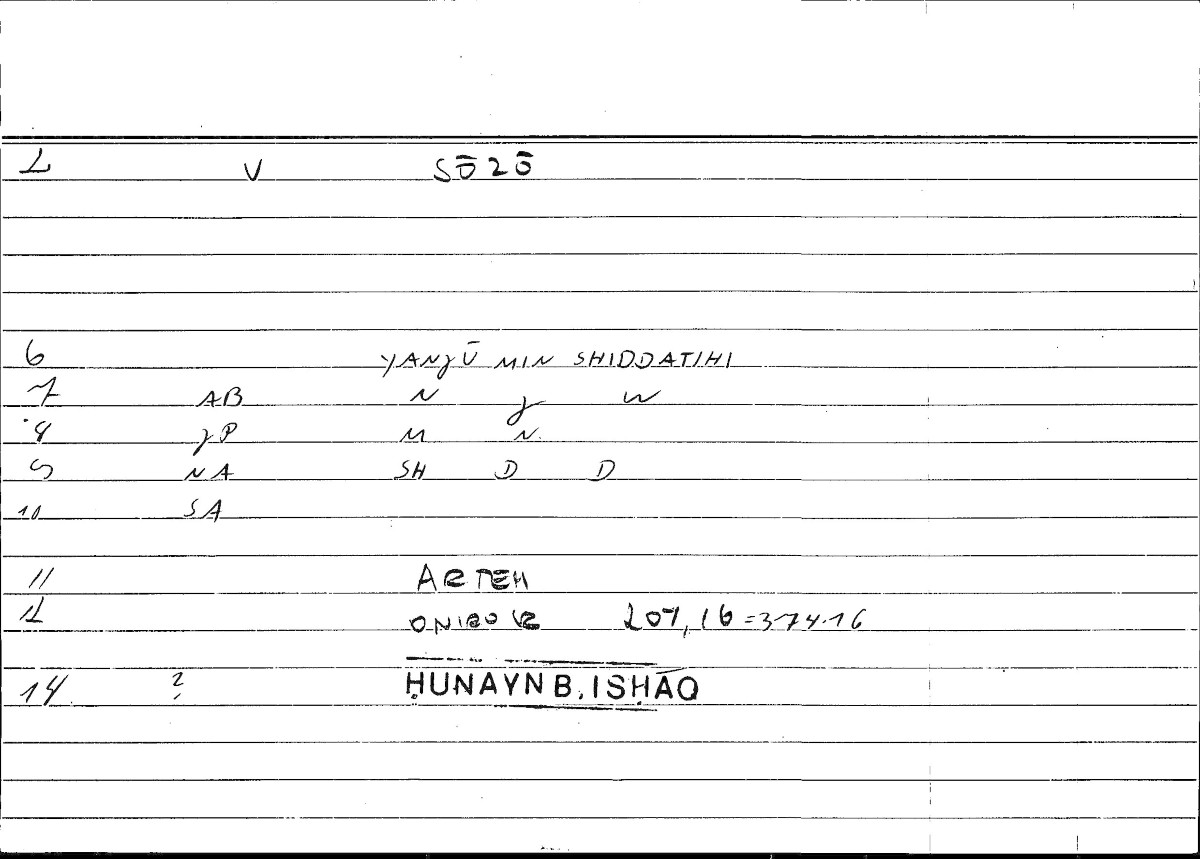 2 V SŌZŌ
6 YANJŪ MIN SHIDDATIHI
7 AB N J W
8 JP M N
9 NA SH D D
10 SA
11 ARTEM
12 ONIROKR 207,16=374.16
14 ? ḤUNAYN B. ISḤĀQ